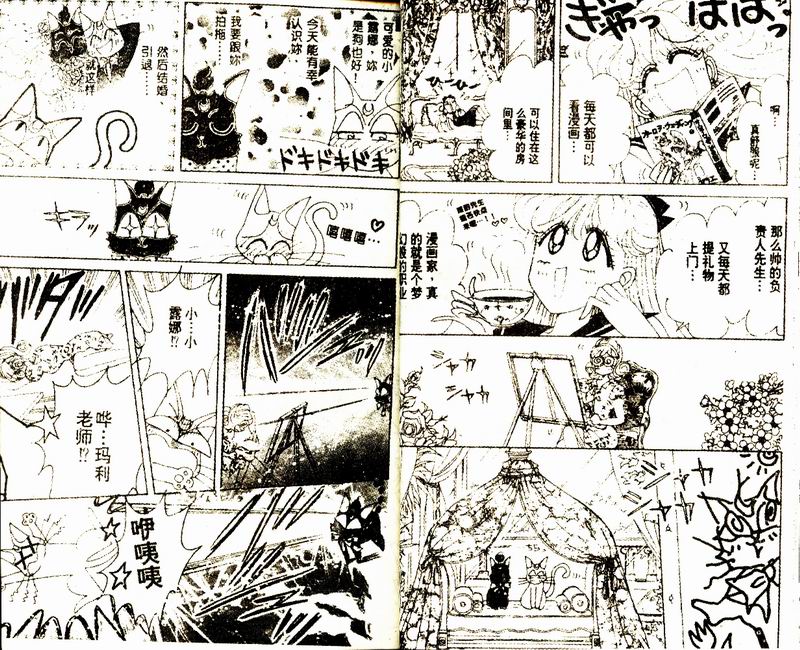 ぎゃっはは、っ
啊…
真舒服呢…
每天都可以
看漫画…
可以住在这
么豪华的房
间里…
那么帅的负
责人先生…
又每天都
提礼物
上门…
漫画家，真
的就是个梦
幻般的职业
シャカ
シャカ
可爱的小
露娜，妳
是狗也好！
今天能有幸
认识妳，
我要跟妳
拍拖…
ドキドキドキ
然后结婚，
引退……
就这样
嘻嘻嘻…
キラッ
小…小
露娜!?
哗…玛利
老师!?
咿咦咦